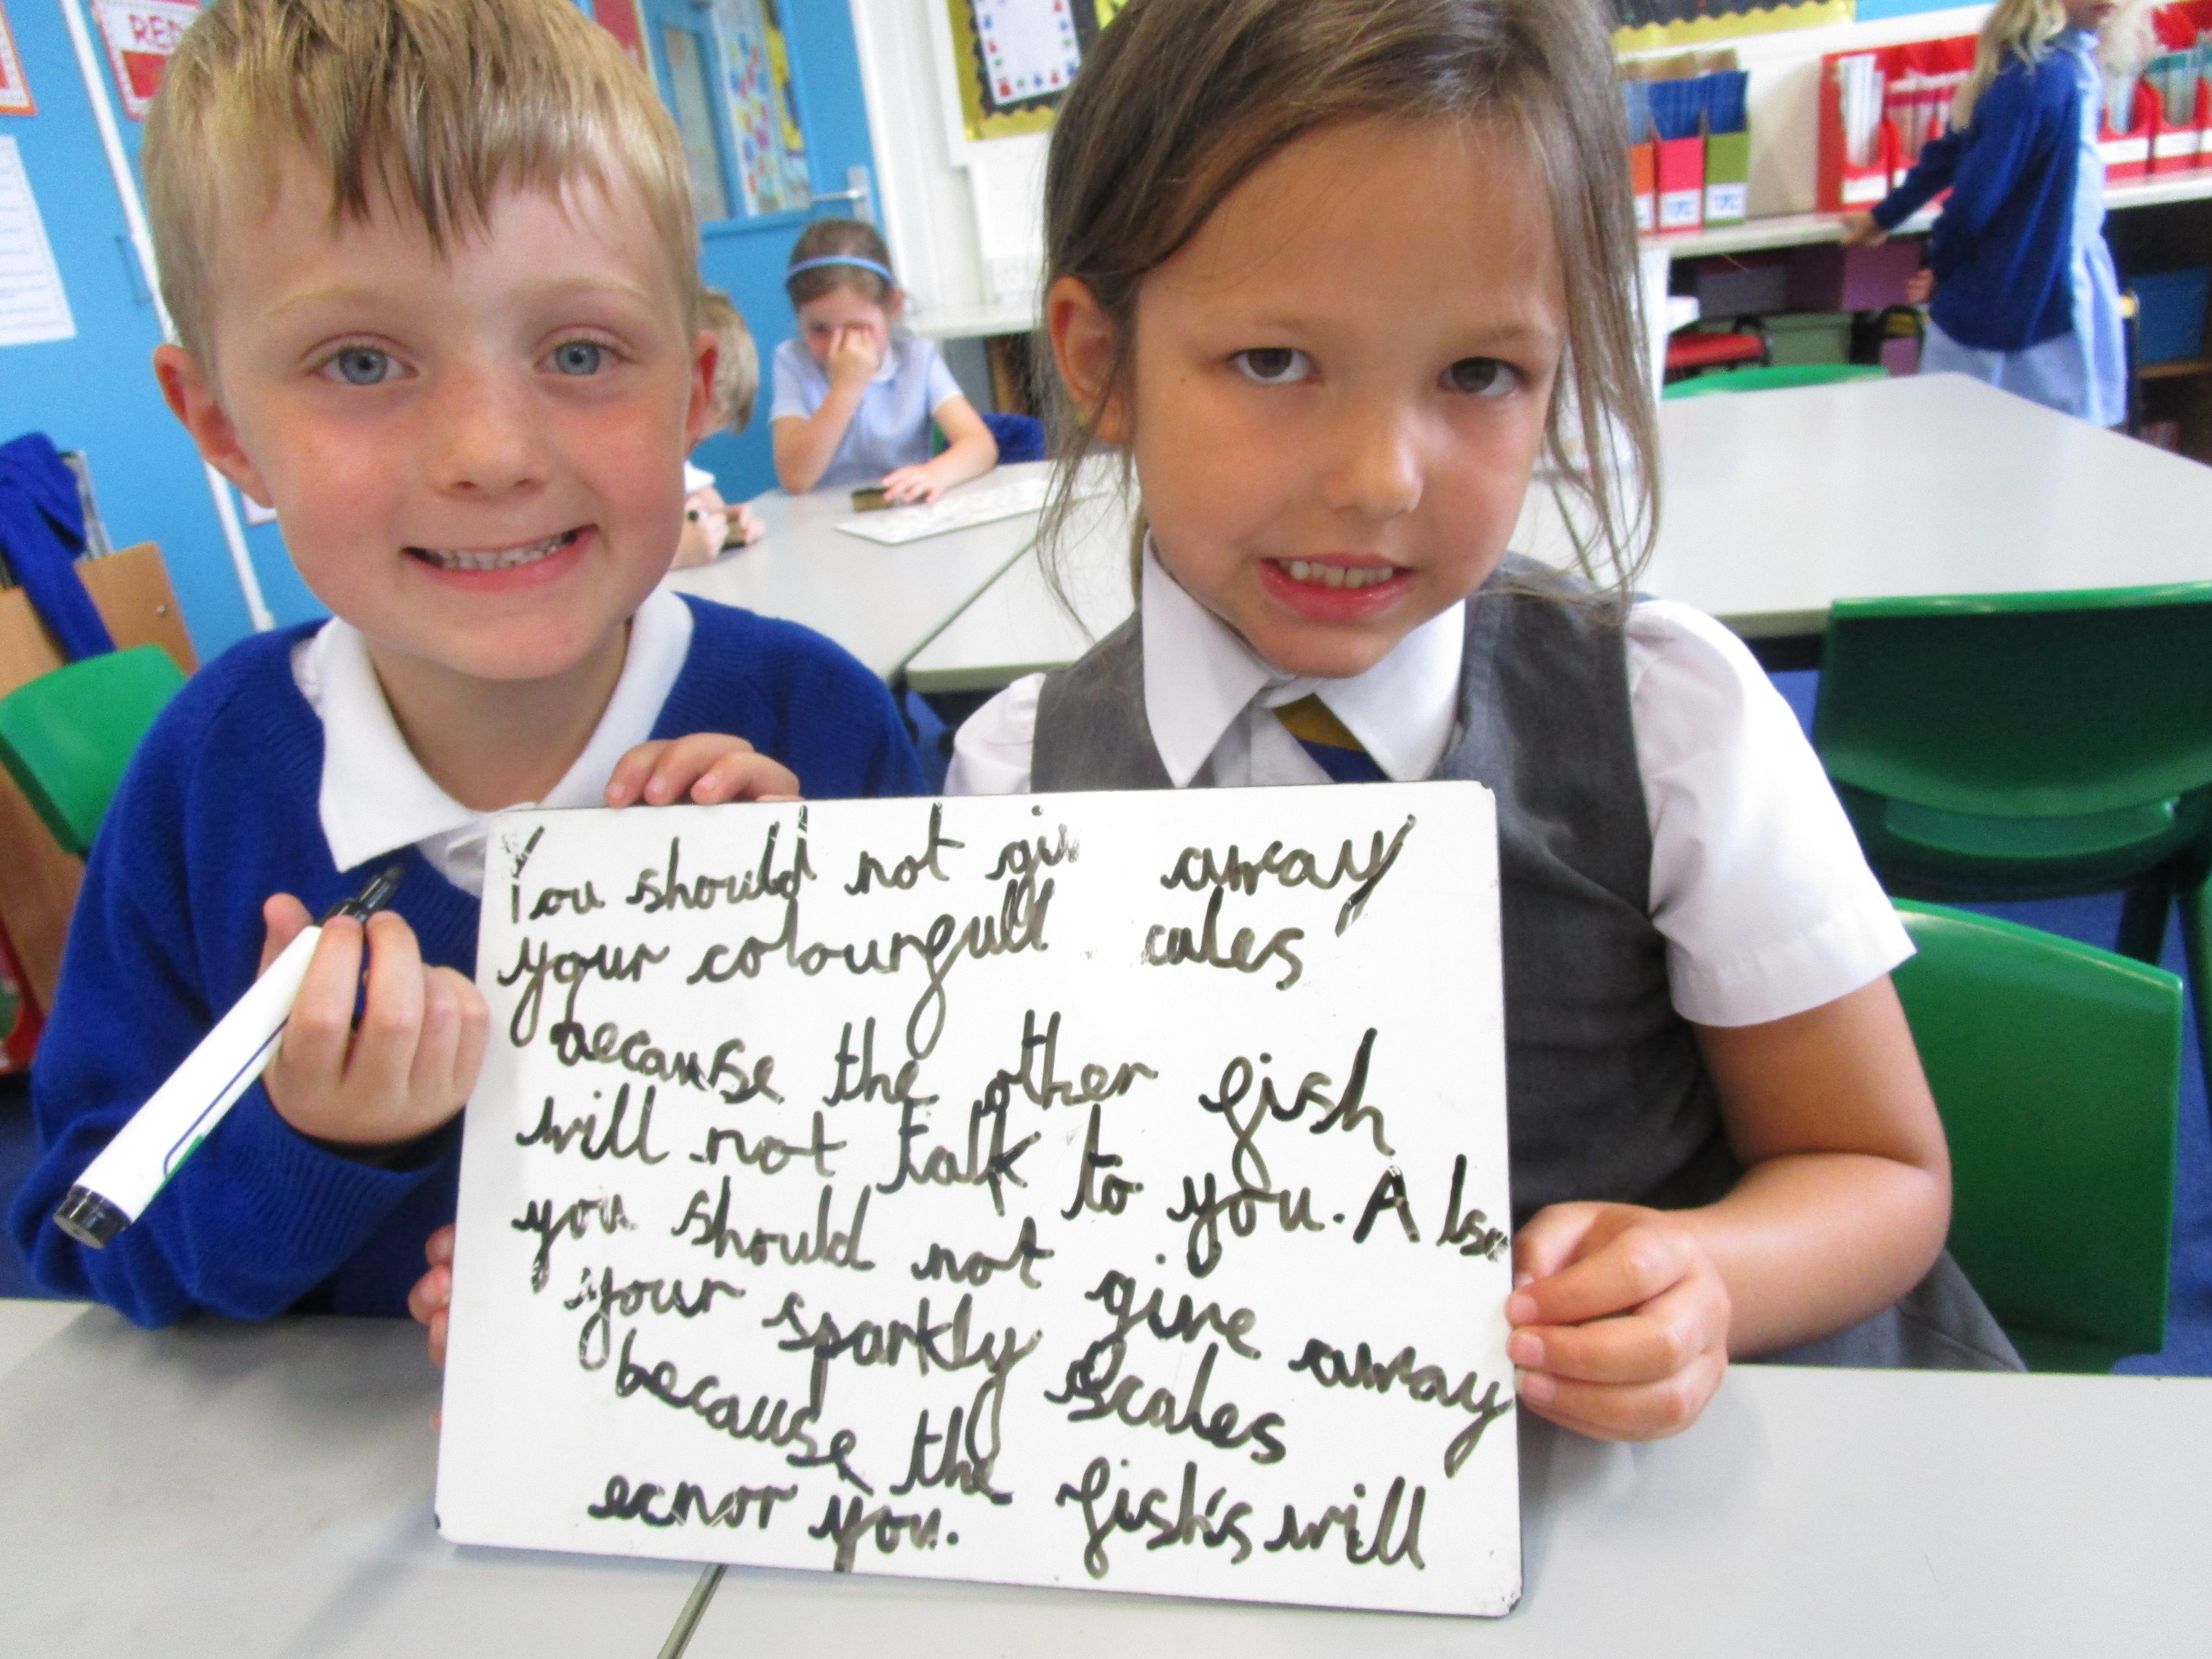 RED
You should not giv away
your colourfull cales
because the other fish
will not talk to you. Also
you should not give away
your sparkly scales
because the fish's will
ecnor you.